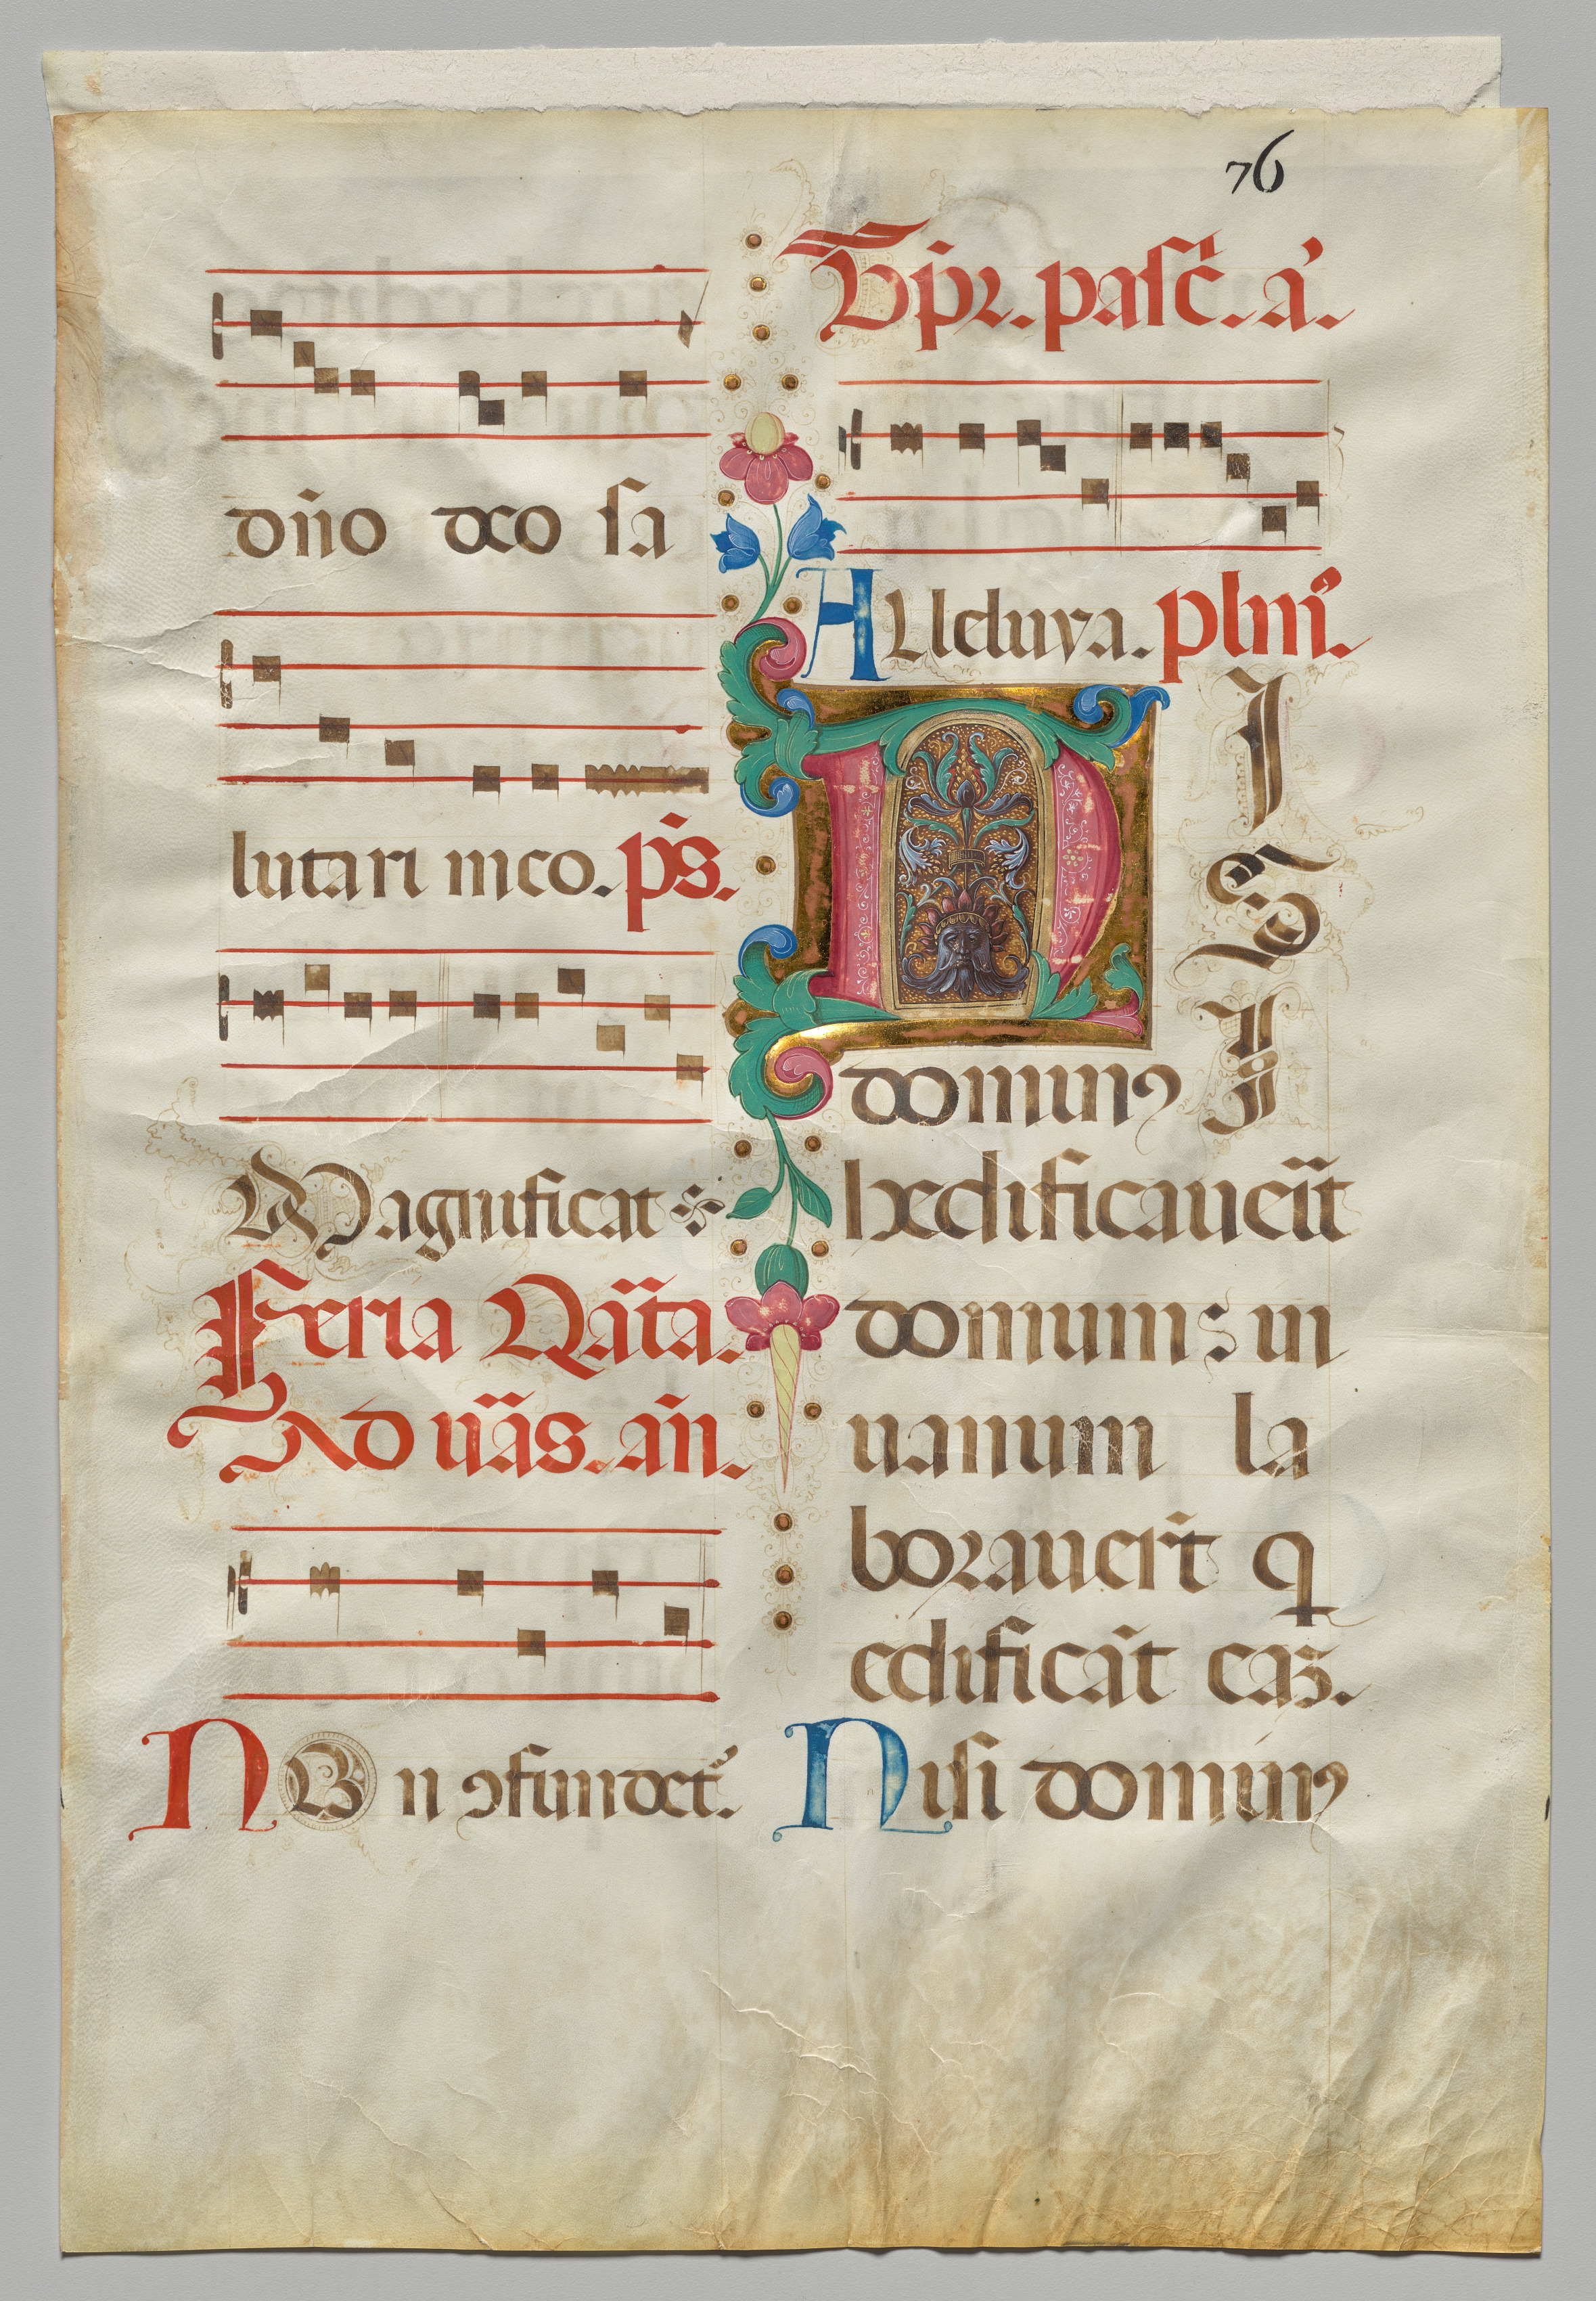 76
dn̄o deo sa
lutari meo. ps̄.
Magnificat
Feria Qūta.
Ad ūas. añ.
NOn ɔfundet᷑.
Tp̄r. pasc̄. a᷑.
Alleluya. plm᷑.
NISI
dominꝰ
hedificaueīt
domum: in
uanum la
borauer̄t q
edificāt eaꝫ.
Nisi dominꝰ